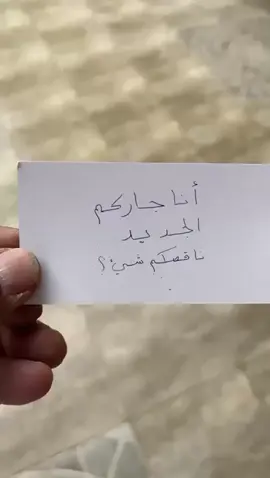 أنا جاركم
الجديد
ناقصكم شيء؟